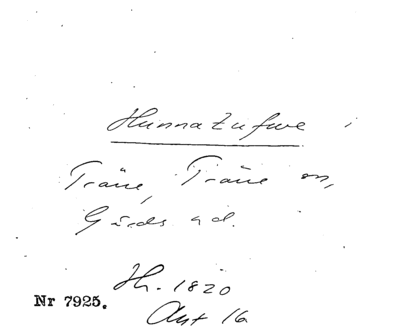 Hunnatufwe i
Träne, Träne sn,
Gärds hd.
Hh. 1820
Nr 7925.
Akt 16